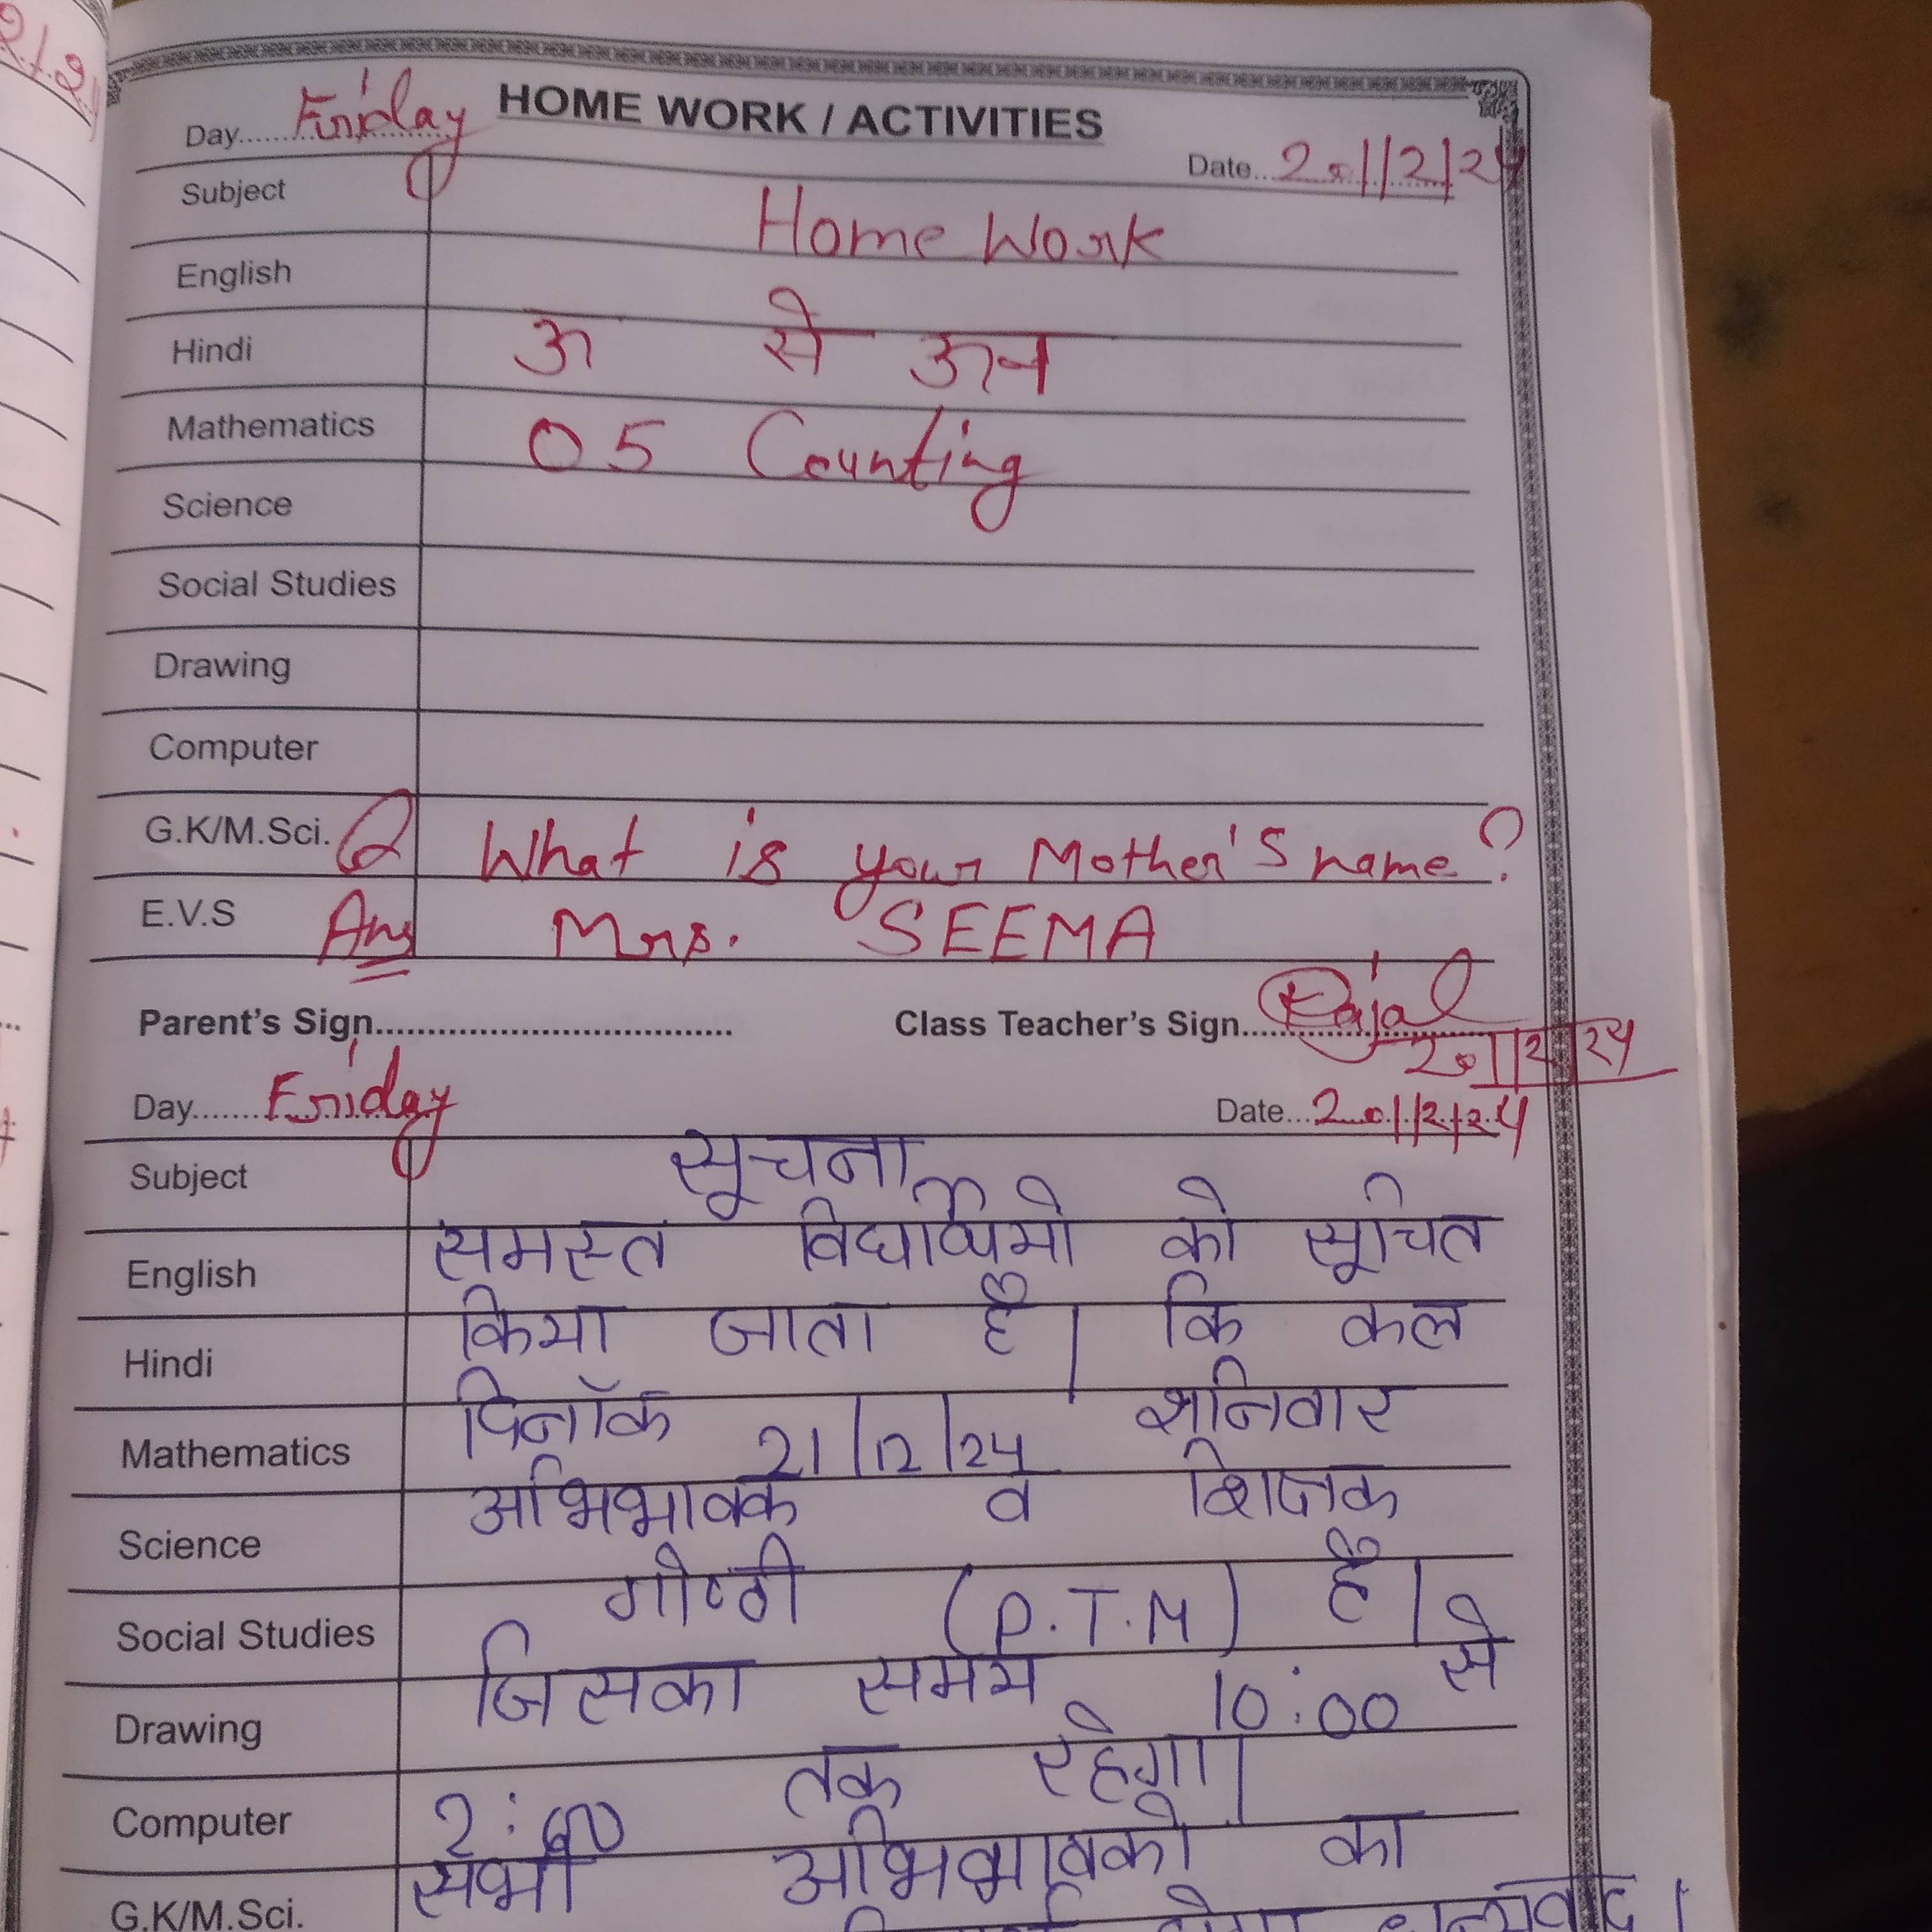 HOME WORK / ACTIVITIES
Day.......Friday
Date...20/12/24
Subject Home Work
English
Hindi ऊ से ऊन
Mathematics 05 Counting
Science
Social Studies
Drawing
Computer
G.K/M.Sci. Q What is your Mother's name?
E.V.S Ans Mrs. SEEMA
Parent's Sign.................................. Class Teacher's Sign.......Rajal
20/12/24
Day.......Friday
Date...20/12/24
Subject सूचना
English समस्त विद्यार्थियो को सूचित
Hindi किया जाता है। कि कल
Mathematics दिनाँक 21/12/24 शनिवार
Science अभिभावक व शिक्षक
Social Studies गोष्ठी (P.T.M) है।
Drawing जिसका समय 10:00 से
Computer 2:00 तक रहेगा।
G.K/M.Sci. सभी अभिभावको का
धन्यवाद।